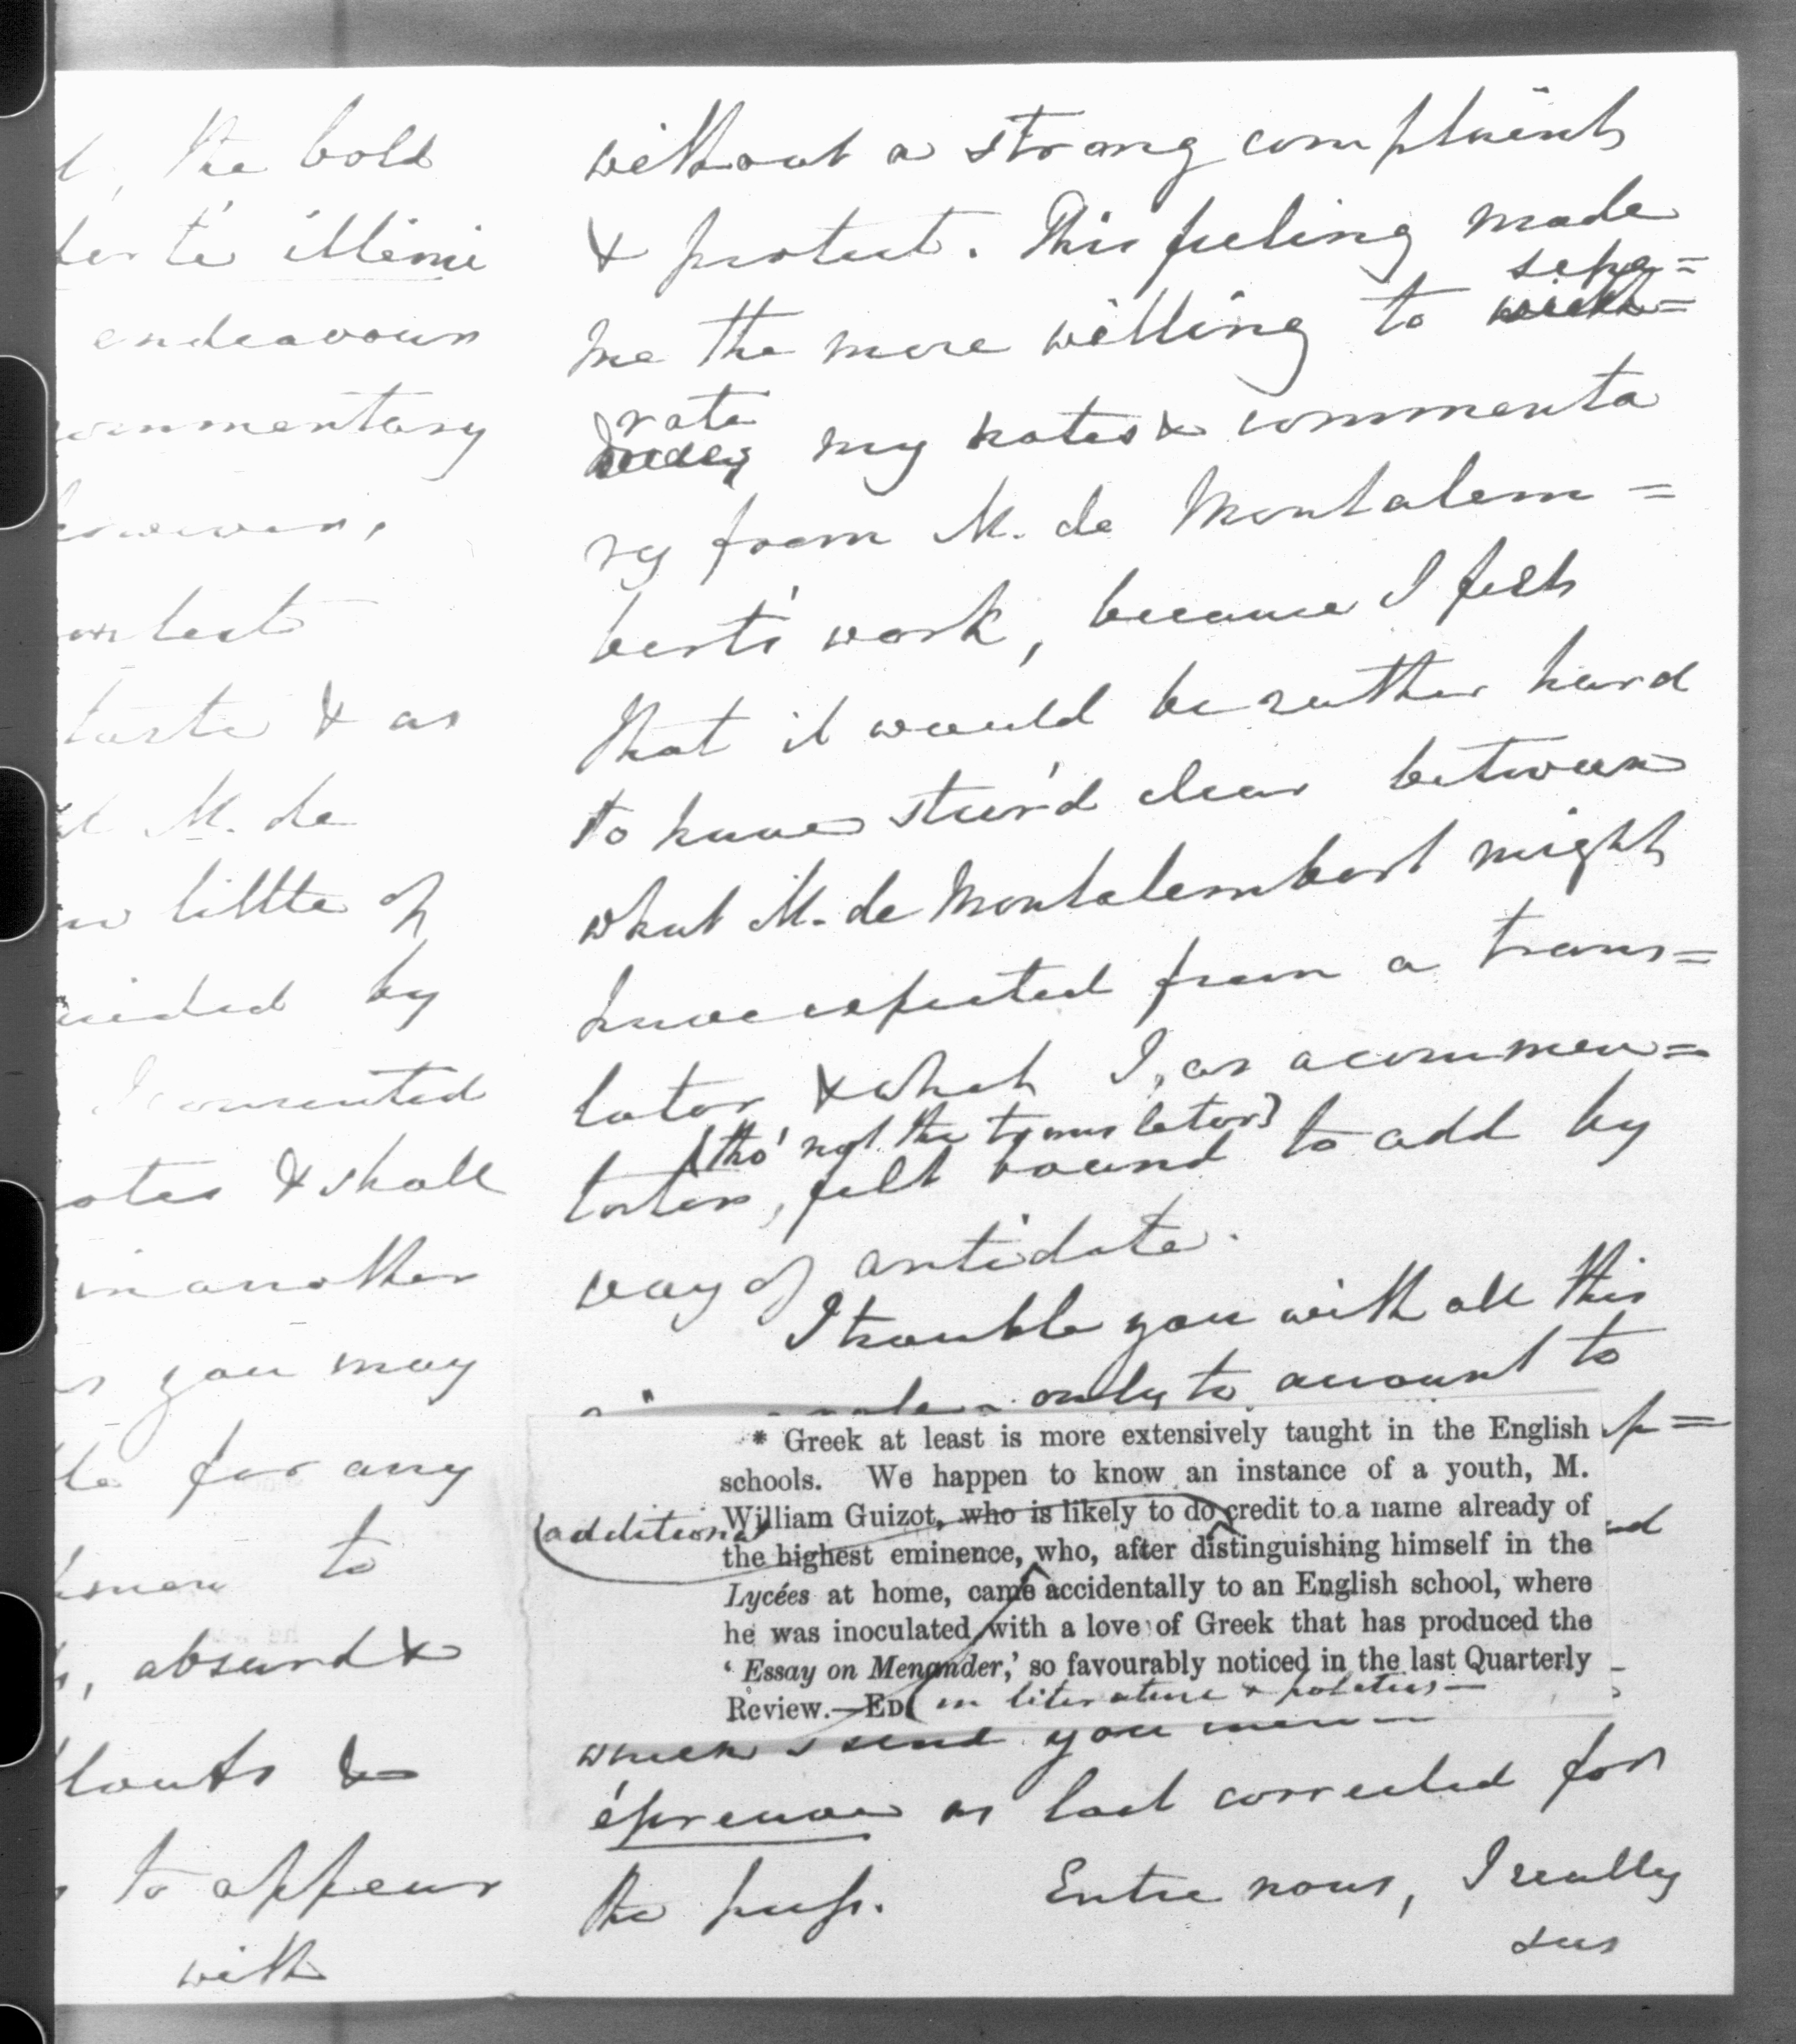 the bold
illimi
endeavours
commentary
however,
contest
taste & as
M. de
little of
by
I consented
notes & shall
in another
you may
for any
to
absurd &
&
to appear
with
without a strong complaint
& protest. This feeling made
me the more willing to sepa=
rate my notes & commenta
ry from M. de Montalem=
bert's work, because I felt
that it would be rather hard
to have steer'd clear between
what M. de Montalembert might
have expected from a trans=
lator & what I, as a commen=
tator, (tho' not the translator) felt bound to add by
way of antidote.
I trouble you with all this
only to amount to
p=
* Greek at least is more extensively taught in the English
schools. We happen to know an instance of a youth, M.
William Guizot, who is likely to do credit to a name already of
(additional
the highest eminence, who, after distinguishing himself in the
Lycées at home, came accidentally to an English school, where
he was inoculated with a love of Greek that has produced the
‘Essay on Menander,’ so favourably noticed in the last Quarterly
Review.—ED. (in literature & politics—
which I send you
épreuve as last corrected for
the press. Entre nous, I really